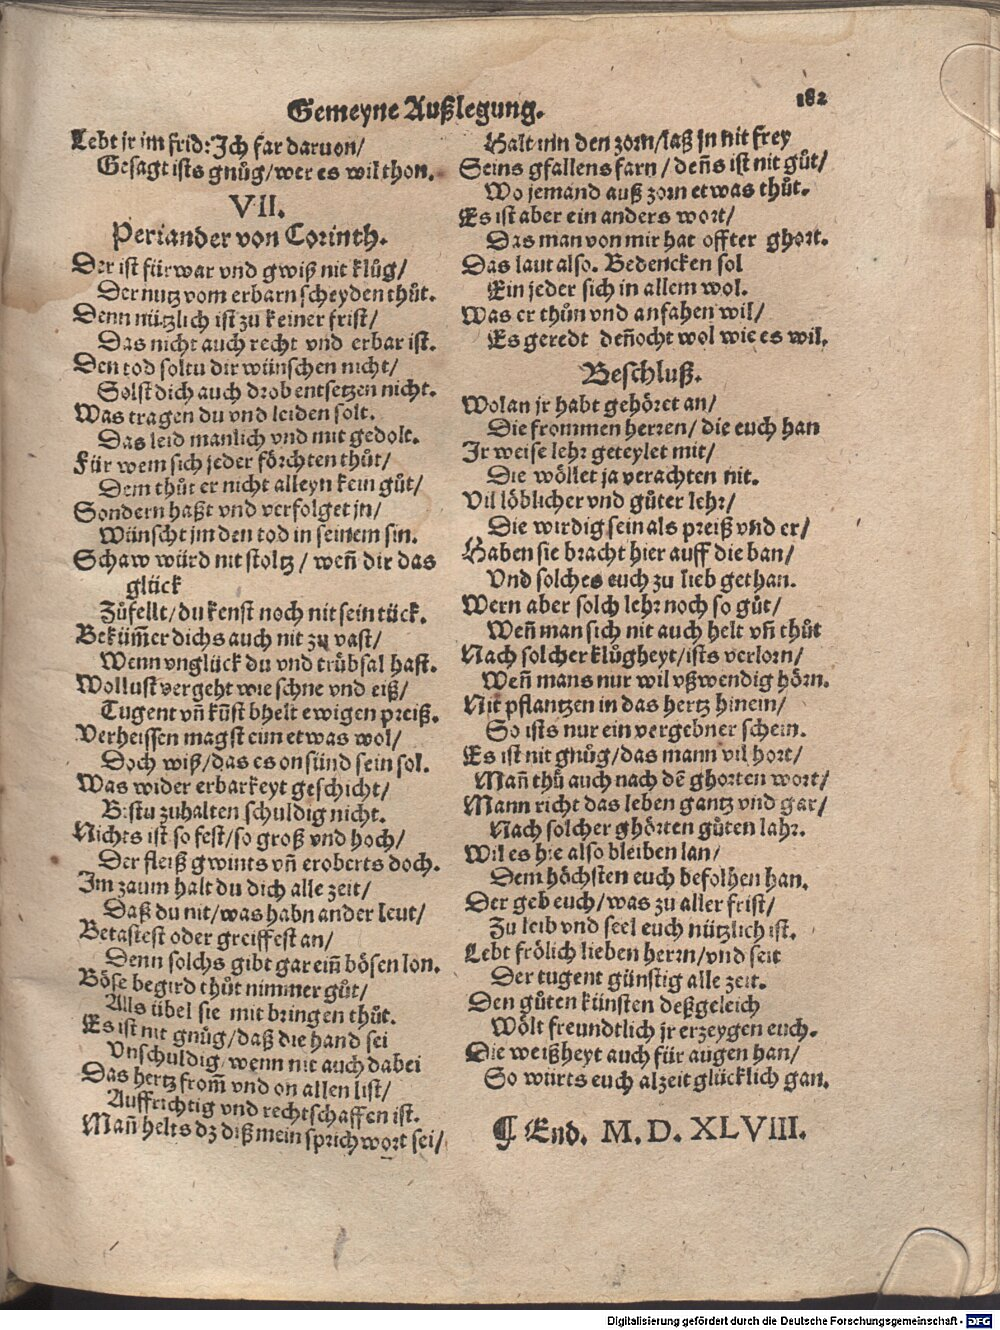 Gemeyne Außlegung. 182
Lebt jr im frid: Ich far daruon/
Gesagt ists gnůg/wer es wil thon.
VII.
Periander von Corinth.
Der ist fürwar vnd gwiß nit klůg/
Der nutz vom erbarn scheyden thůt.
Denn nützlich ist zu keiner frist/
Das nicht auch recht vnd erbar ist.
Den tod soltu dir wünschen nicht/
Solst dich auch drob entsetzen nicht.
Was tragen du vnd leiden solt.
Das leid manlich vnd mit gedolt.
Für wem sich jeder förchten thůt/
Dem thůt er nicht alleyn kein gůt/
Sondern haßt vnd verfolget jn/
Wünscht jm den tod in seinem sin.
Schaw würd nit stoltz / weñ dir das
glück
Zůfellt/du kenst noch nit sein tück.
Bekům̃er dichs auch nit zu vast/
Wenn vnglück du vnd trübsal hast.
Wollust vergeht wie schne vnd eiß/
Tugent vñ kũst bhelt ewigen preiß.
Verheissen magst eim etwas wol/
Doch wiß/das es on sünd sein sol.
Was wider erbarkeyt geschicht/
Bistu zuhalten schuldig nicht.
Nichts ist so fest/so groß vnd hoch/
Der fleiß gwints vñ eroberts doch.
Im zaum halt du dich alle zeit/
Daß du nit/was habn ander leut/
Betastest oder greiffest an/
Denn solchs gibt gar eim̃ bösen lon.
Böse begird thůt nimmer gůt/
Alls übel sie mit bringen thůt.
Es ist nit gnůg/daß die hand sei
Vnschuldig/wenn nit auch dabei
Das hertz from̃ vnd on allen list/
Auffrichtig vnd rechtschaffen ist.
Mañ helts dz diß mein sprichwort sei/
Halt inn den zorn/laß jn nit frey
Seins gfallens farn / deñs ist nit gůt/
Wo jemand auß zorn etwas thůt.
Es ist aber ein anders wort/
Das man von mir hat offter ghort.
Das laut also. Bedencken sol
Ein jeder sich in allem wol.
Was er thůn vnd anfahen wil/
Es geredt deñocht wol wie es wil.
Beschluß.
Wolan jr habt gehöret an/
Die frommen herren/ die euch han
Ir weise lehr geteylet mit/
Die wöllet ja verachten nit.
Vil löblicher vnd gůter lehr/
Die wirdig sein als preiß vnd er/
Haben sie bracht hier auff die ban/
Vnd solches euch zu lieb gethan.
Wern aber solch lehr noch so gůt/
Weñ man sich nit auch helt vñ thůt
Nach solcher klůgheyt/ists verlorn/
Weñ mans nur wil vßwendig hörn.
Nit pflantzen in das hertz hinein/
So ists nur ein vergebner schein.
Es ist nit gnůg/das mann vil hort/
Mañ thů auch nach dẽ ghorten wort/
Mann richt das leben gantz vnd gar/
Nach solcher ghörten gůten lahr.
Wil es hie also bleiben lan/
Dem höchsten euch befolhen han.
Der geb euch/was zu aller frist/
Zu leib vnd seel euch nützlich ist.
Lebt frölich lieben herrn/vnd seit
Der tugent günstig alle zeit.
Den gůten künsten deßgeleich
Wölt freundtlich jr erzeygen euch.
Die weißheyt auch für augen han/
So würts euch alzeit glücklich gan.
¶ End. M. D. XLVIII.
Digitalisierung gefördert durch die Deutsche Forschungsgemeinschaft - DFG